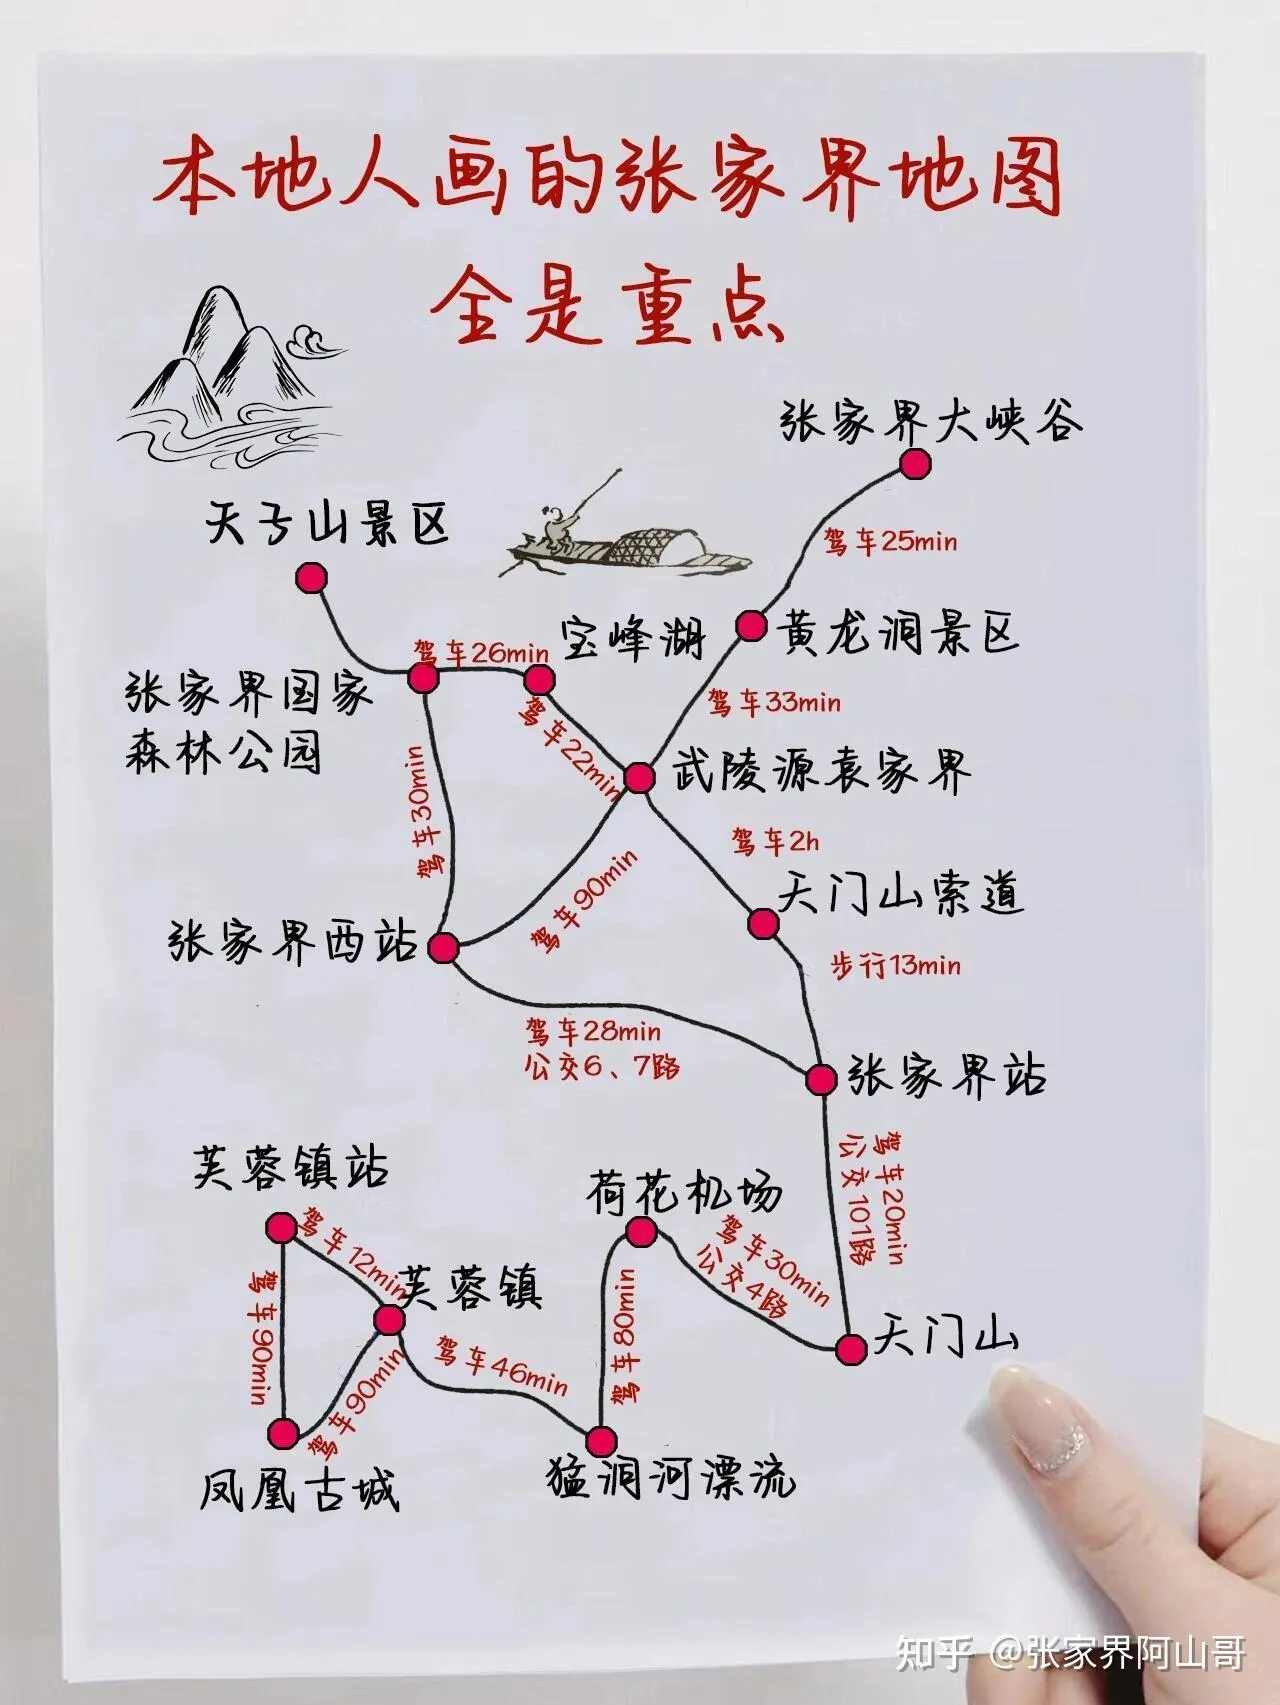 本地人画的张家界地图
全是重点
张家界大峡谷
驾车25min
天子山景区
宝峰湖
黄龙洞景区
驾车26min
张家界国家
森林公园
驾车22min
驾车33min
武陵源袁家界
驾车30min
驾车90min
驾车2h
天门山索道
张家界西站
步行13min
驾车28min
公交6、7路
张家界站
驾车20min
公交101路
芙蓉镇站
荷花机场
驾车12min
驾车30min
公交4路
驾车90min
芙蓉镇
驾车80min
天门山
驾车90min
驾车46min
凤凰古城
猛洞河漂流
知乎 @张家界阿山哥